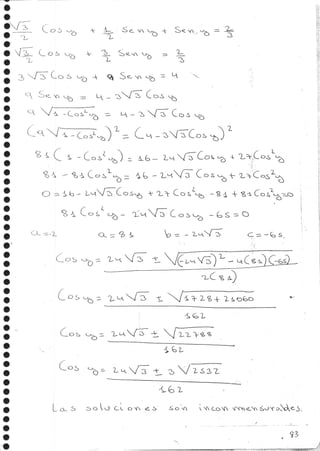 √3/2 Cos y + 1/2 Sen y + Sen. y = 2/3
√3/2 Cos y + 3/2 Sen y = 2/3
3 √3 Cos y + 9 Sen y = 4
9 Sen y = 4 - 3√3 Cos y
9 √1 - Cos² y = 4 - 3√3 Cos y
(9 √1 - Cos² y)² = (4 - 3√3 Cos y)²
81 (1 - Cos² y) = 16 - 24√3 Cos y + 27 Cos² y
81 - 81 Cos² y = 16 - 24√3 Cos y + 27 Cos² y
0 = 16 - 24√3 Cos y + 27 Cos² y - 81 + 81 Cos² y = 0
81 Cos² y - 24√3 Cos y - 65 = 0
a = 81 b = -24√3 c = -65.
Cos y = 24 √3 ± √(-24 √3)² - 4(81)(-65)
2(81)
Cos y = 24 √3 ± √1728 + 21060
162
Cos y = 24 √3 ± √22788
162
Cos y = 24 √3 ± 3 √2532
162
Las soluciones son inconmensurables.
93